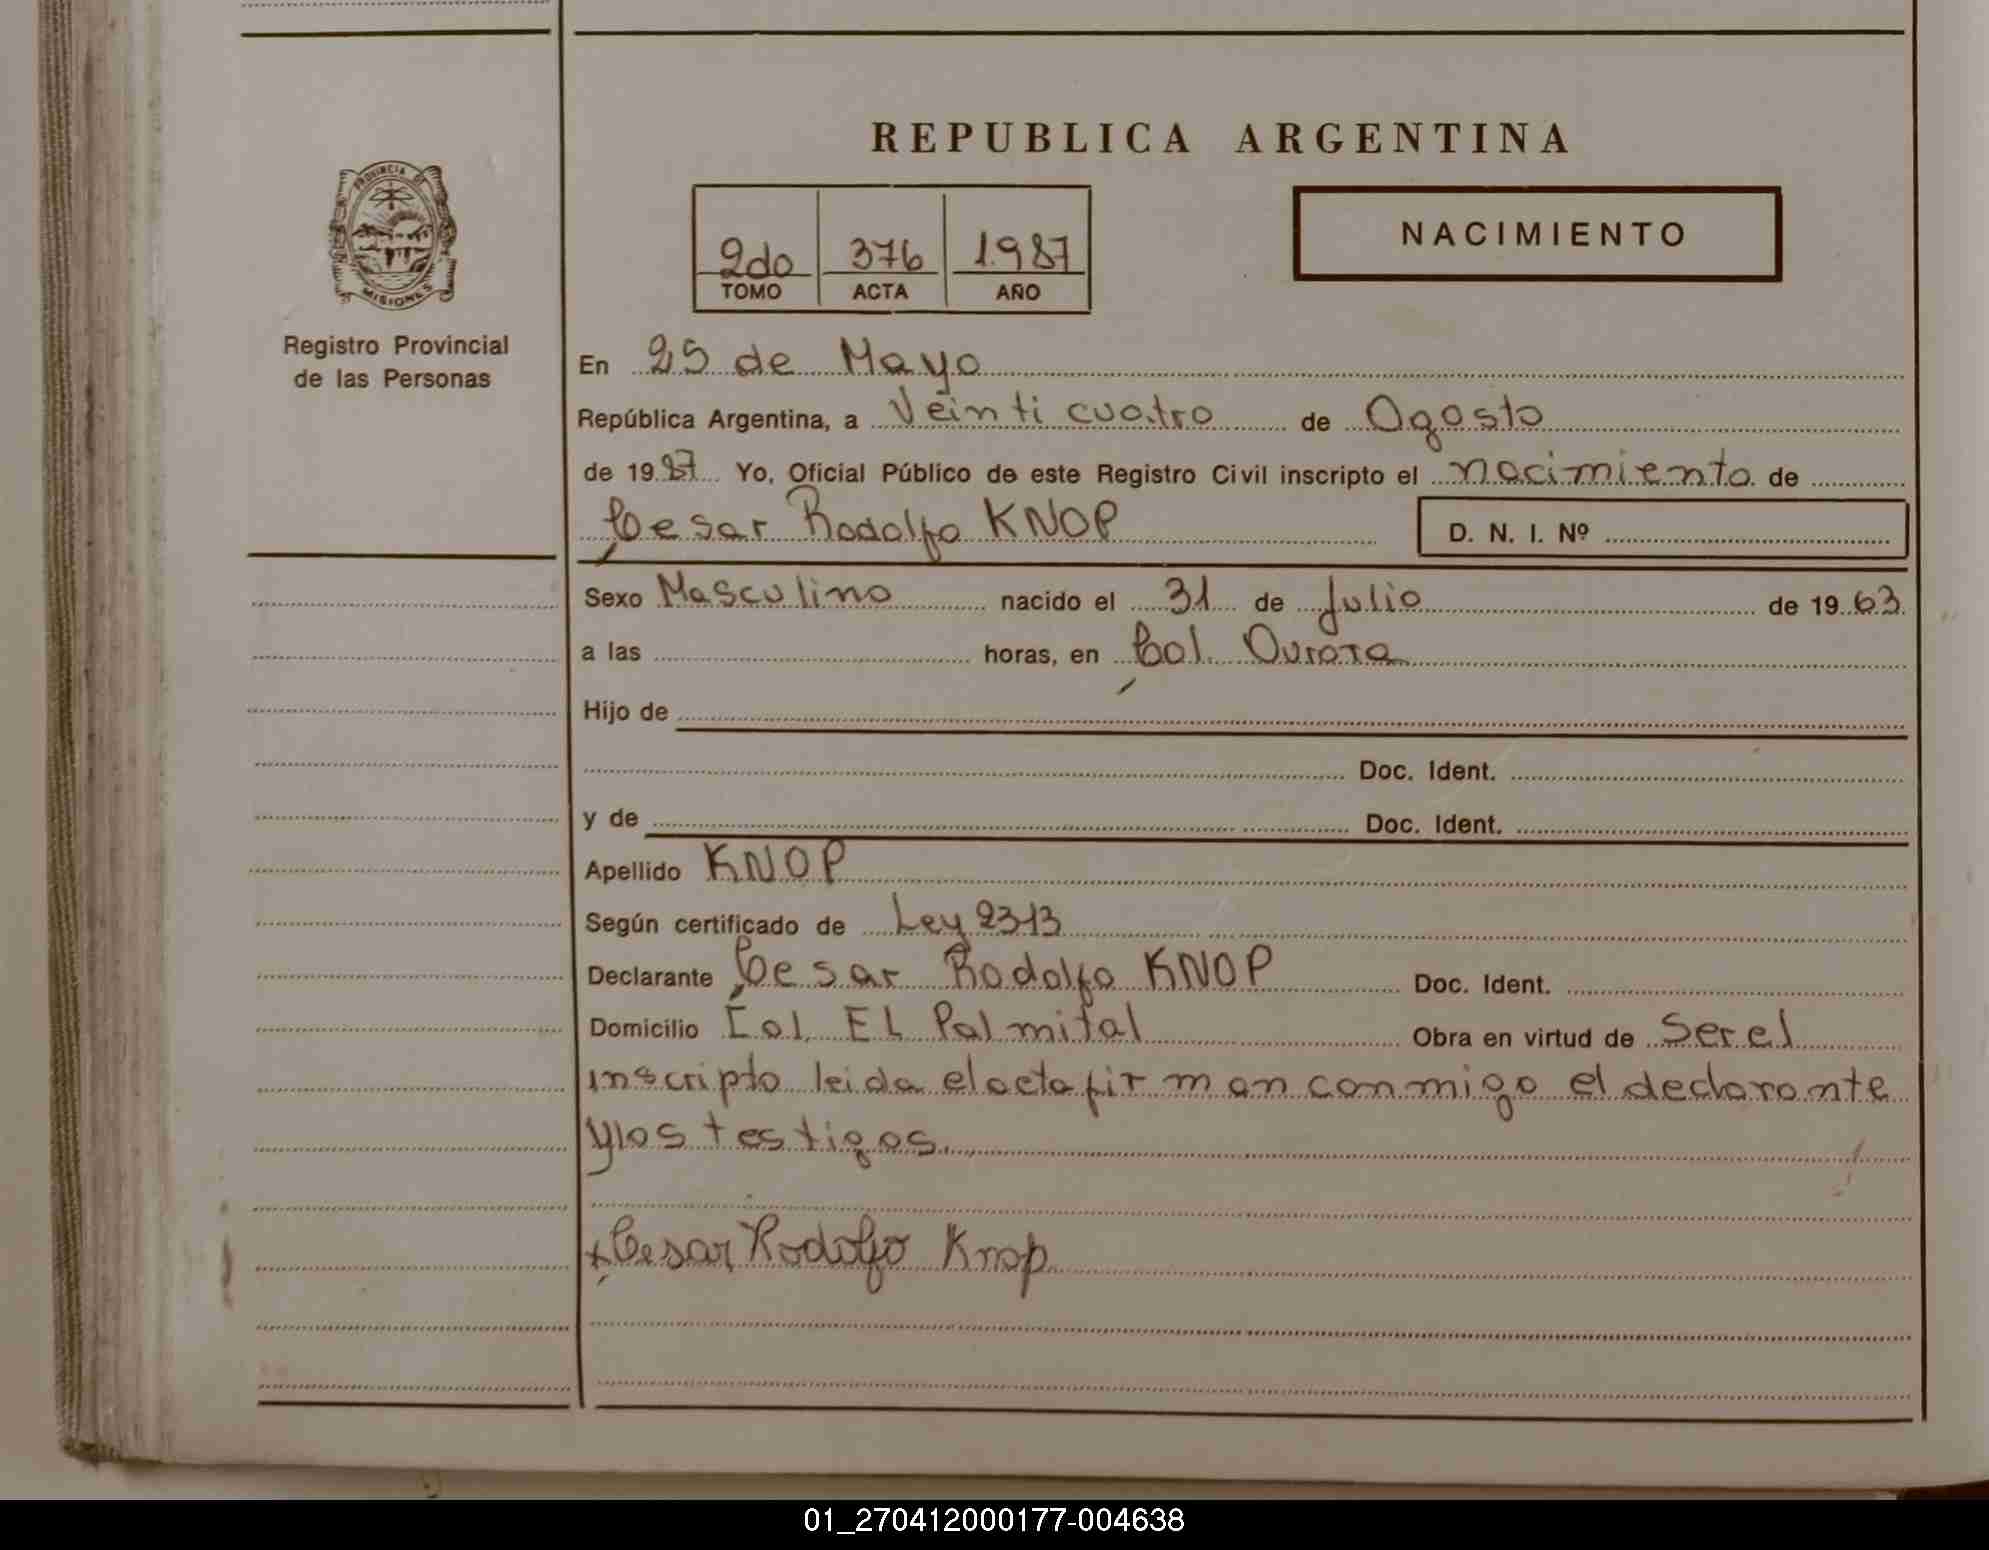 REPUBLICA ARGENTINA
PROVINCIA DE
MISIONES
Registro Provincial
de las Personas
2do 376 1.987
TOMO ACTA AÑO
NACIMIENTO
En 25 de Mayo
República Argentina, a Veinti cuatro de Agosto
de 1987 Yo, Oficial Público de este Registro Civil inscripto el nacimiento de
Cesar Rodolfo KNOP D. N. I. Nº
Sexo Masculino nacido el 31 de Julio de 1963
a las horas, en Col. Aurora
Hijo de
Doc. Ident.
y de Doc. Ident.
Apellido KNOP
Según certificado de Ley 2313
Declarante Cesar Rodolfo KNOP Doc. Ident.
Domicilio Col. EL Palmital Obra en virtud de Ser el
inscripto leida el acta firman conmigo el declarante
y los testigos.
x Cesar Rodolfo Knop
01_270412000177-004638